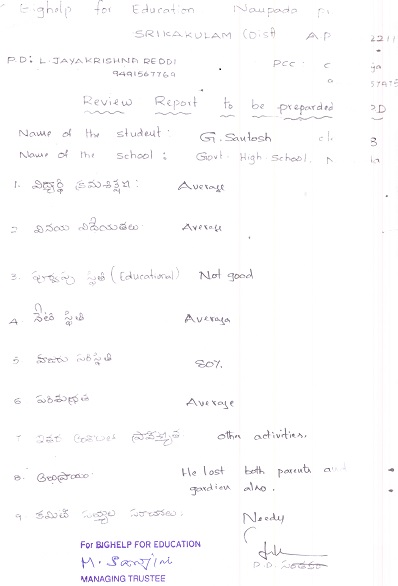 Bighelp for Education Naupada
SRIKAKULAM (Dist) A P
P.D: L. JAYAKRISHNA REDDI
9491567769
Review Report to be preparded PD
Name of the student: G. Santosh
Name of the school: Govt. High School.
1. విద్యార్థి క్రమశిక్షణ: Average
2 వినయ విధేయతలు Average
3. పూర్వపు స్థితి (Educational) Not good
4. నేటి స్థితి Average
5 హాజరు పరిస్థితి 80%
6 పరిశుభ్రత Average
7 ఇతర other activities.
8. అభిప్రాయం: He lost both parents and
gardien also.
9. కమిటి సభ్యుల Needy
For BIGHELP FOR EDUCATION
MANAGING TRUSTEE